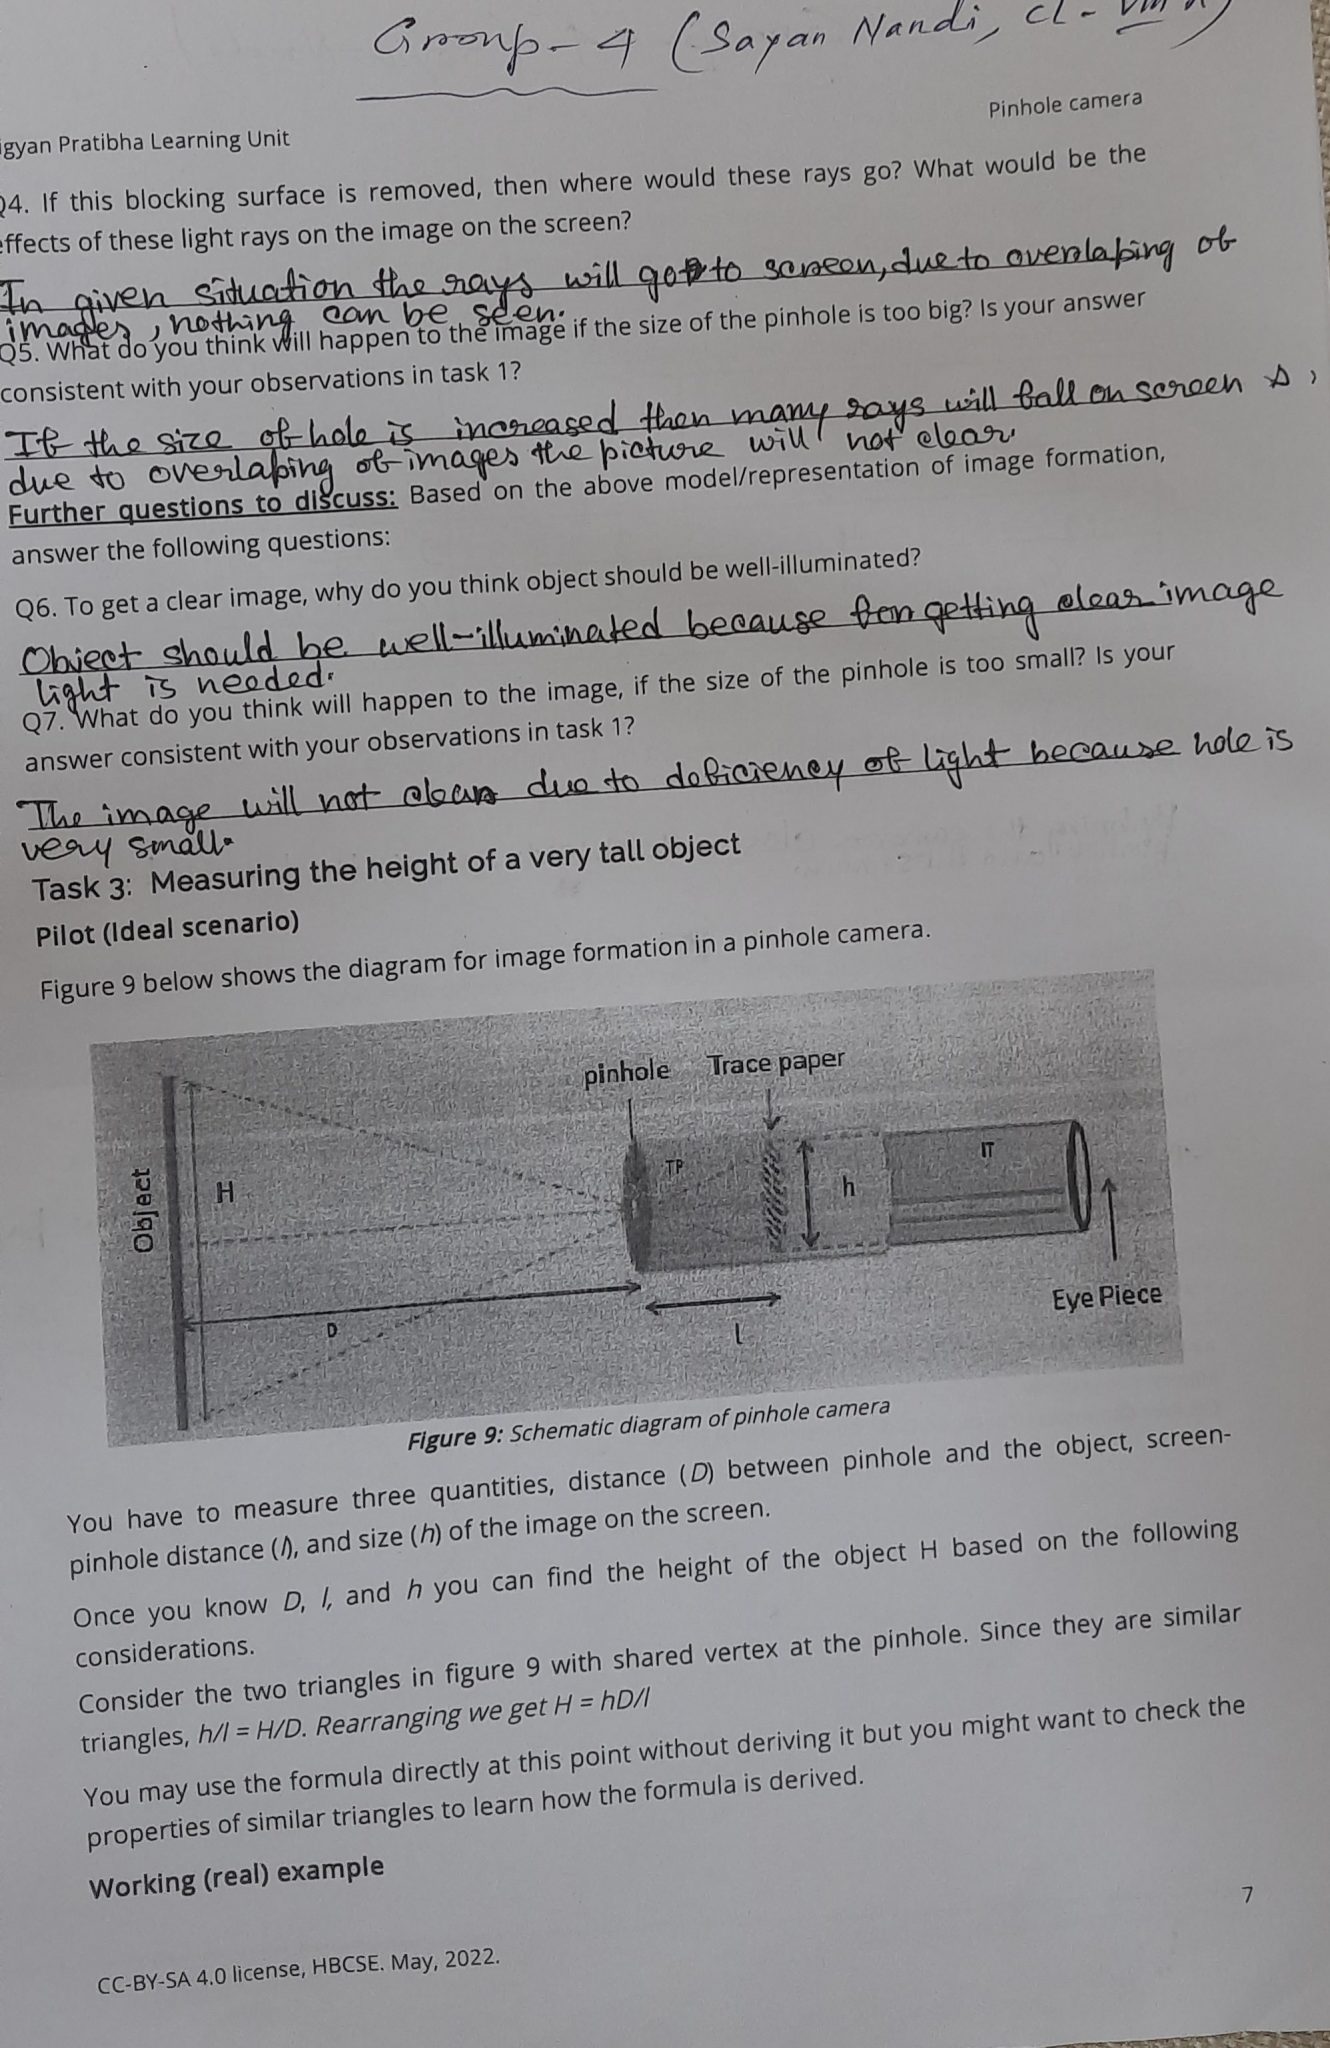 Group-4 (Sayan Nandi, cl-
igyan Pratibha Learning Unit
Pinhole camera
Q4. If this blocking surface is removed, then where would these rays go? What would be the
effects of these light rays on the image on the screen?
In given situation the rays will go to screen, due to overlaping of
images, nothing can be seen.
Q5. What do you think will happen to the image if the size of the pinhole is too big? Is your answer
consistent with your observations in task 1?
If the size of hole is increased then many rays will fall on screen &,
due to overlaping of images the picture will not clear.
Further questions to discuss: Based on the above model/representation of image formation,
answer the following questions:
Q6. To get a clear image, why do you think object should be well-illuminated?
Object should be well-illuminated because for getting clear image
light is needed.
Q7. What do you think will happen to the image, if the size of the pinhole is too small? Is your
answer consistent with your observations in task 1?
The image will not clear due to deficiency of light because hole is
very small.
Task 3: Measuring the height of a very tall object
Pilot (Ideal scenario)
Figure 9 below shows the diagram for image formation in a pinhole camera.
pinhole Trace paper
Object
H
TP
h
IT
D
l
Eye Piece
Figure 9: Schematic diagram of pinhole camera
You have to measure three quantities, distance (D) between pinhole and the object, screen-
pinhole distance (l), and size (h) of the image on the screen.
Once you know D, l, and h you can find the height of the object H based on the following
considerations.
Consider the two triangles in figure 9 with shared vertex at the pinhole. Since they are similar
triangles, h/l = H/D. Rearranging we get H = hD/l
You may use the formula directly at this point without deriving it but you might want to check the
properties of similar triangles to learn how the formula is derived.
Working (real) example
7
CC-BY-SA 4.0 license, HBCSE. May, 2022.